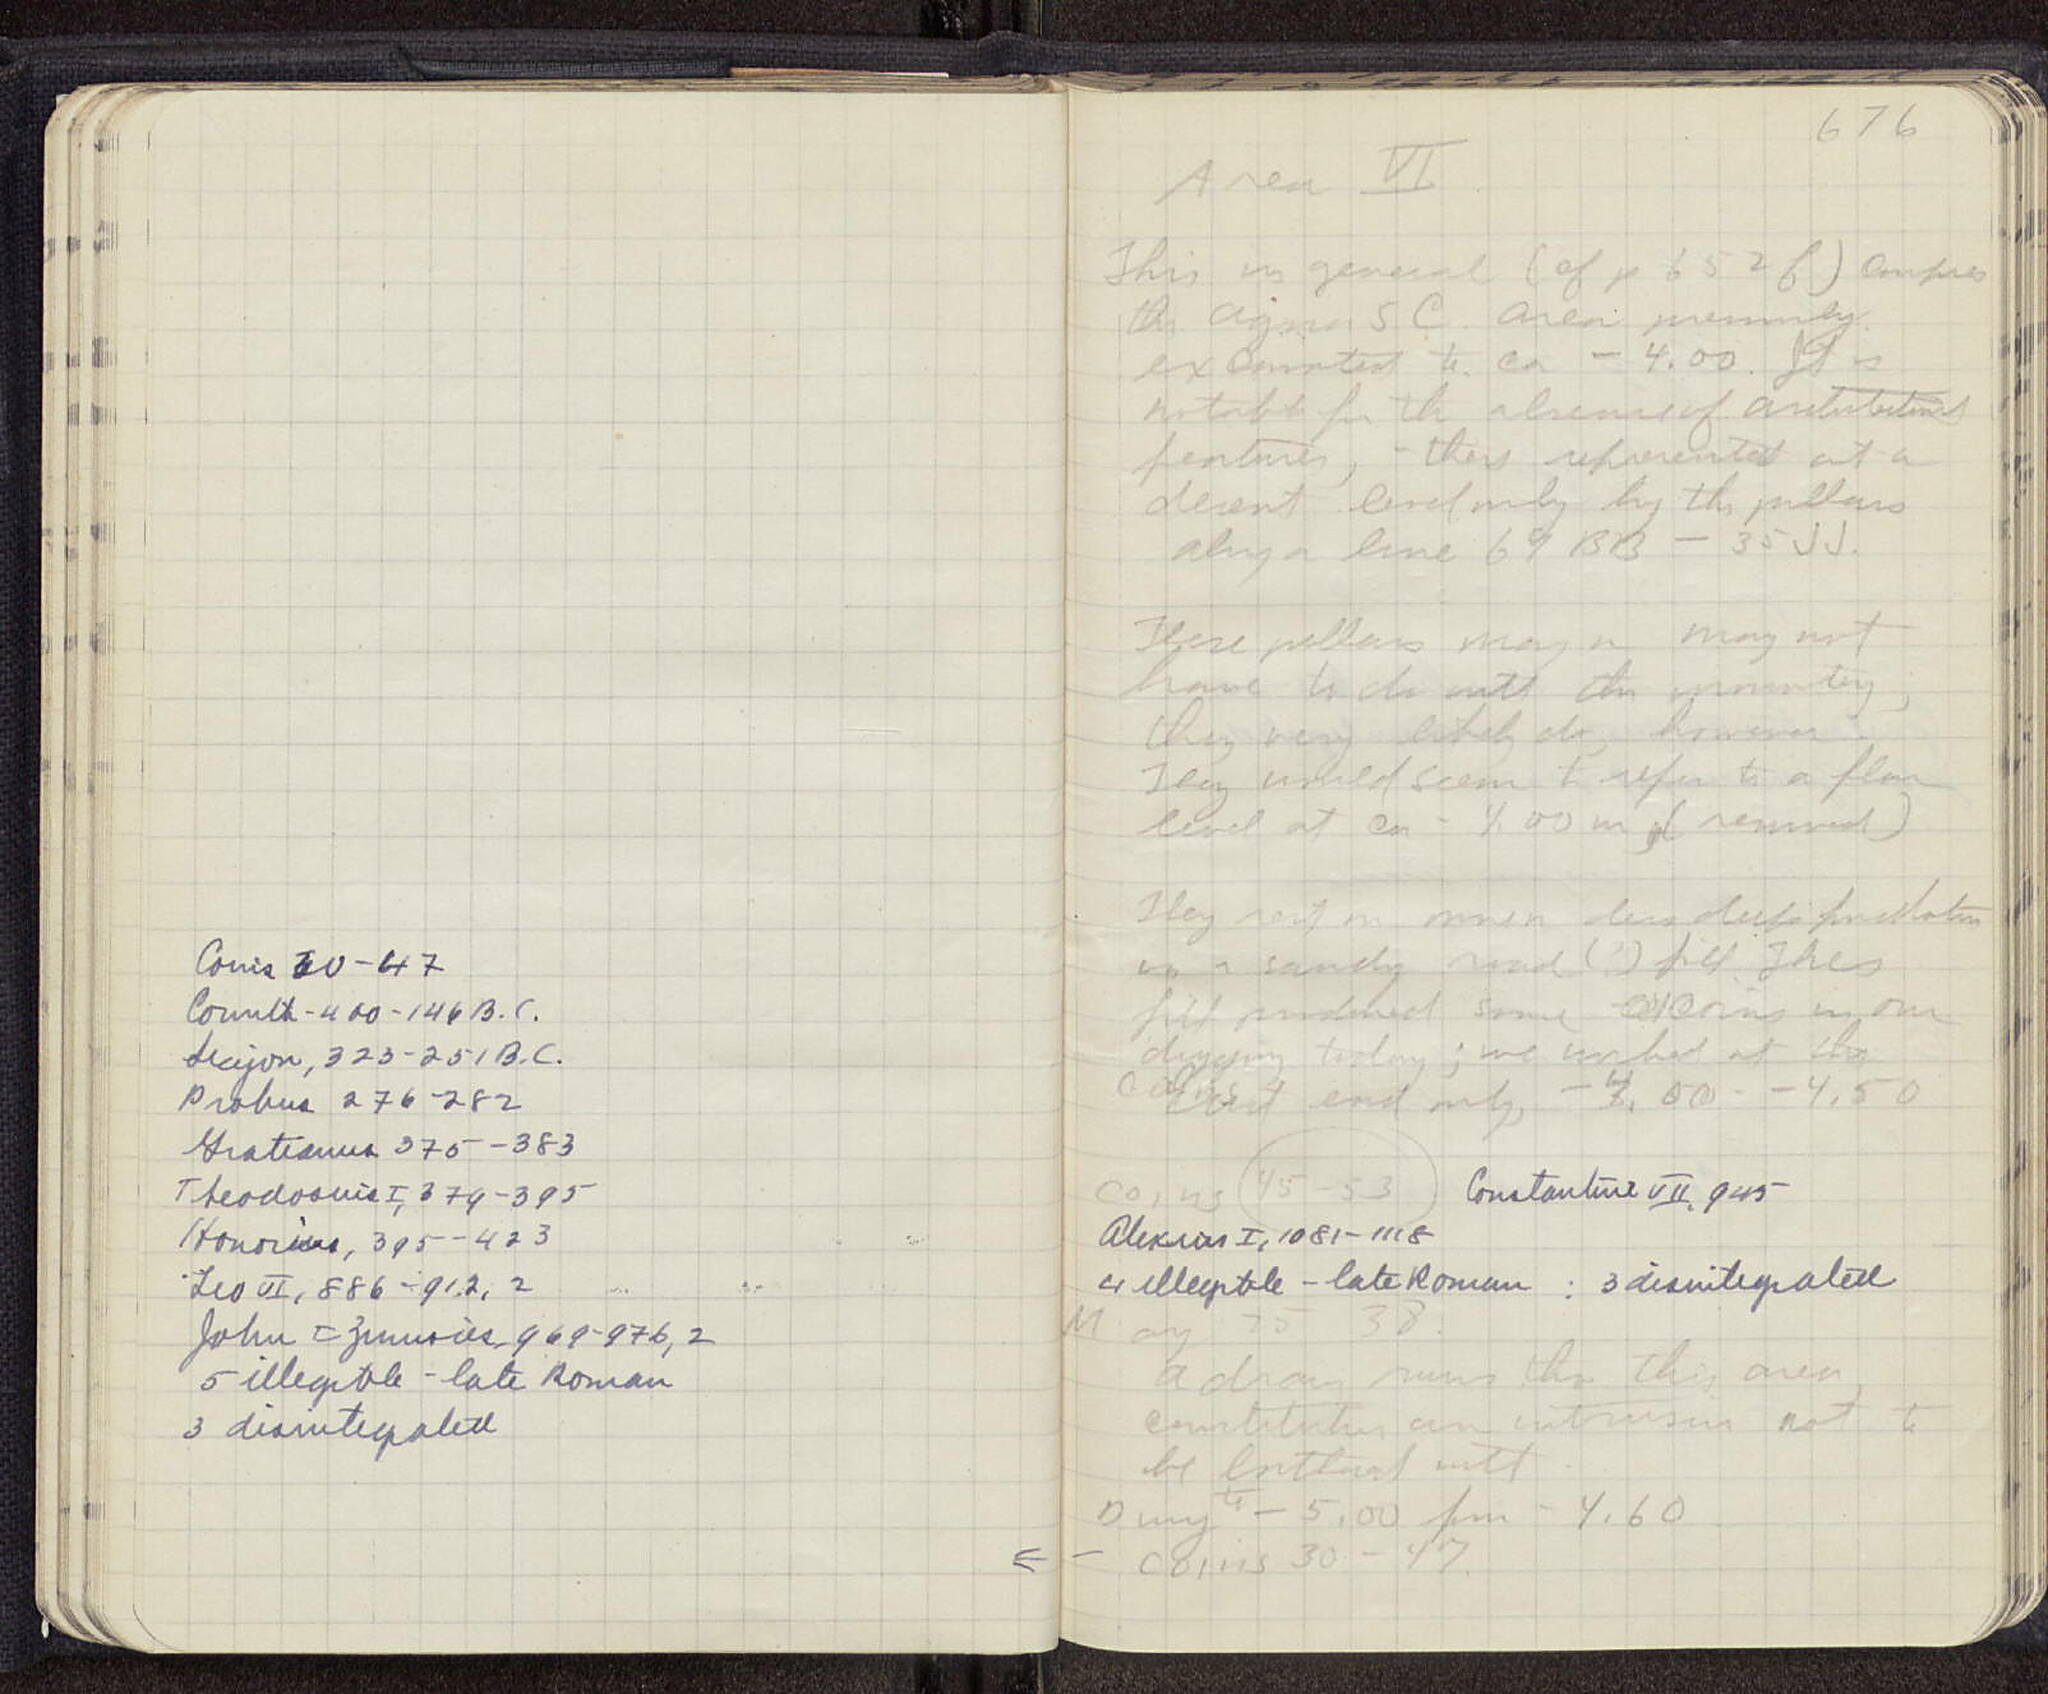 Coins 30-47
Corinth - 400-146 B.C.
Sicyon, 323-251 B.C.
Probus 276-282
Gratianus 375-383
Theodosius I, 379-395
Honorius, 395-423
Leo VI, 886-912, 2
John I Zimisces, 969-976, 2
5 illegible - late Roman
3 disintegrated
676
Area VI
This in general (cf p 652 f) comprises
the Agora S C. Area previously
excavated to ca - 4.00. It is
notable for the absence of architectural
features, - thus represented at a
decent level only by the pillars
along a line 69 BB - 35 JJ.
These pillars may or may not
have to do with the monastery;
they very likely do, however.
They would seem to refer to a floor
level at ca - 4.00 m (removed)
They rest on more or less deep foundations
in a sandy road (?) fill. This
fill produced some coins in our
digging today; we worked at the
East end only, - 4.00 - - 4.50
Coins 45-53 Constantine VII, 945
Alexius I, 1081-1118
4 illegible - late Roman : 3 disintegrated
May 25 38.
A drain runs thr this area,
constitutes an intrusion not to
be bothered with.
Dug to - 5.00 fm - 4.60
← - Coins 30 - 47